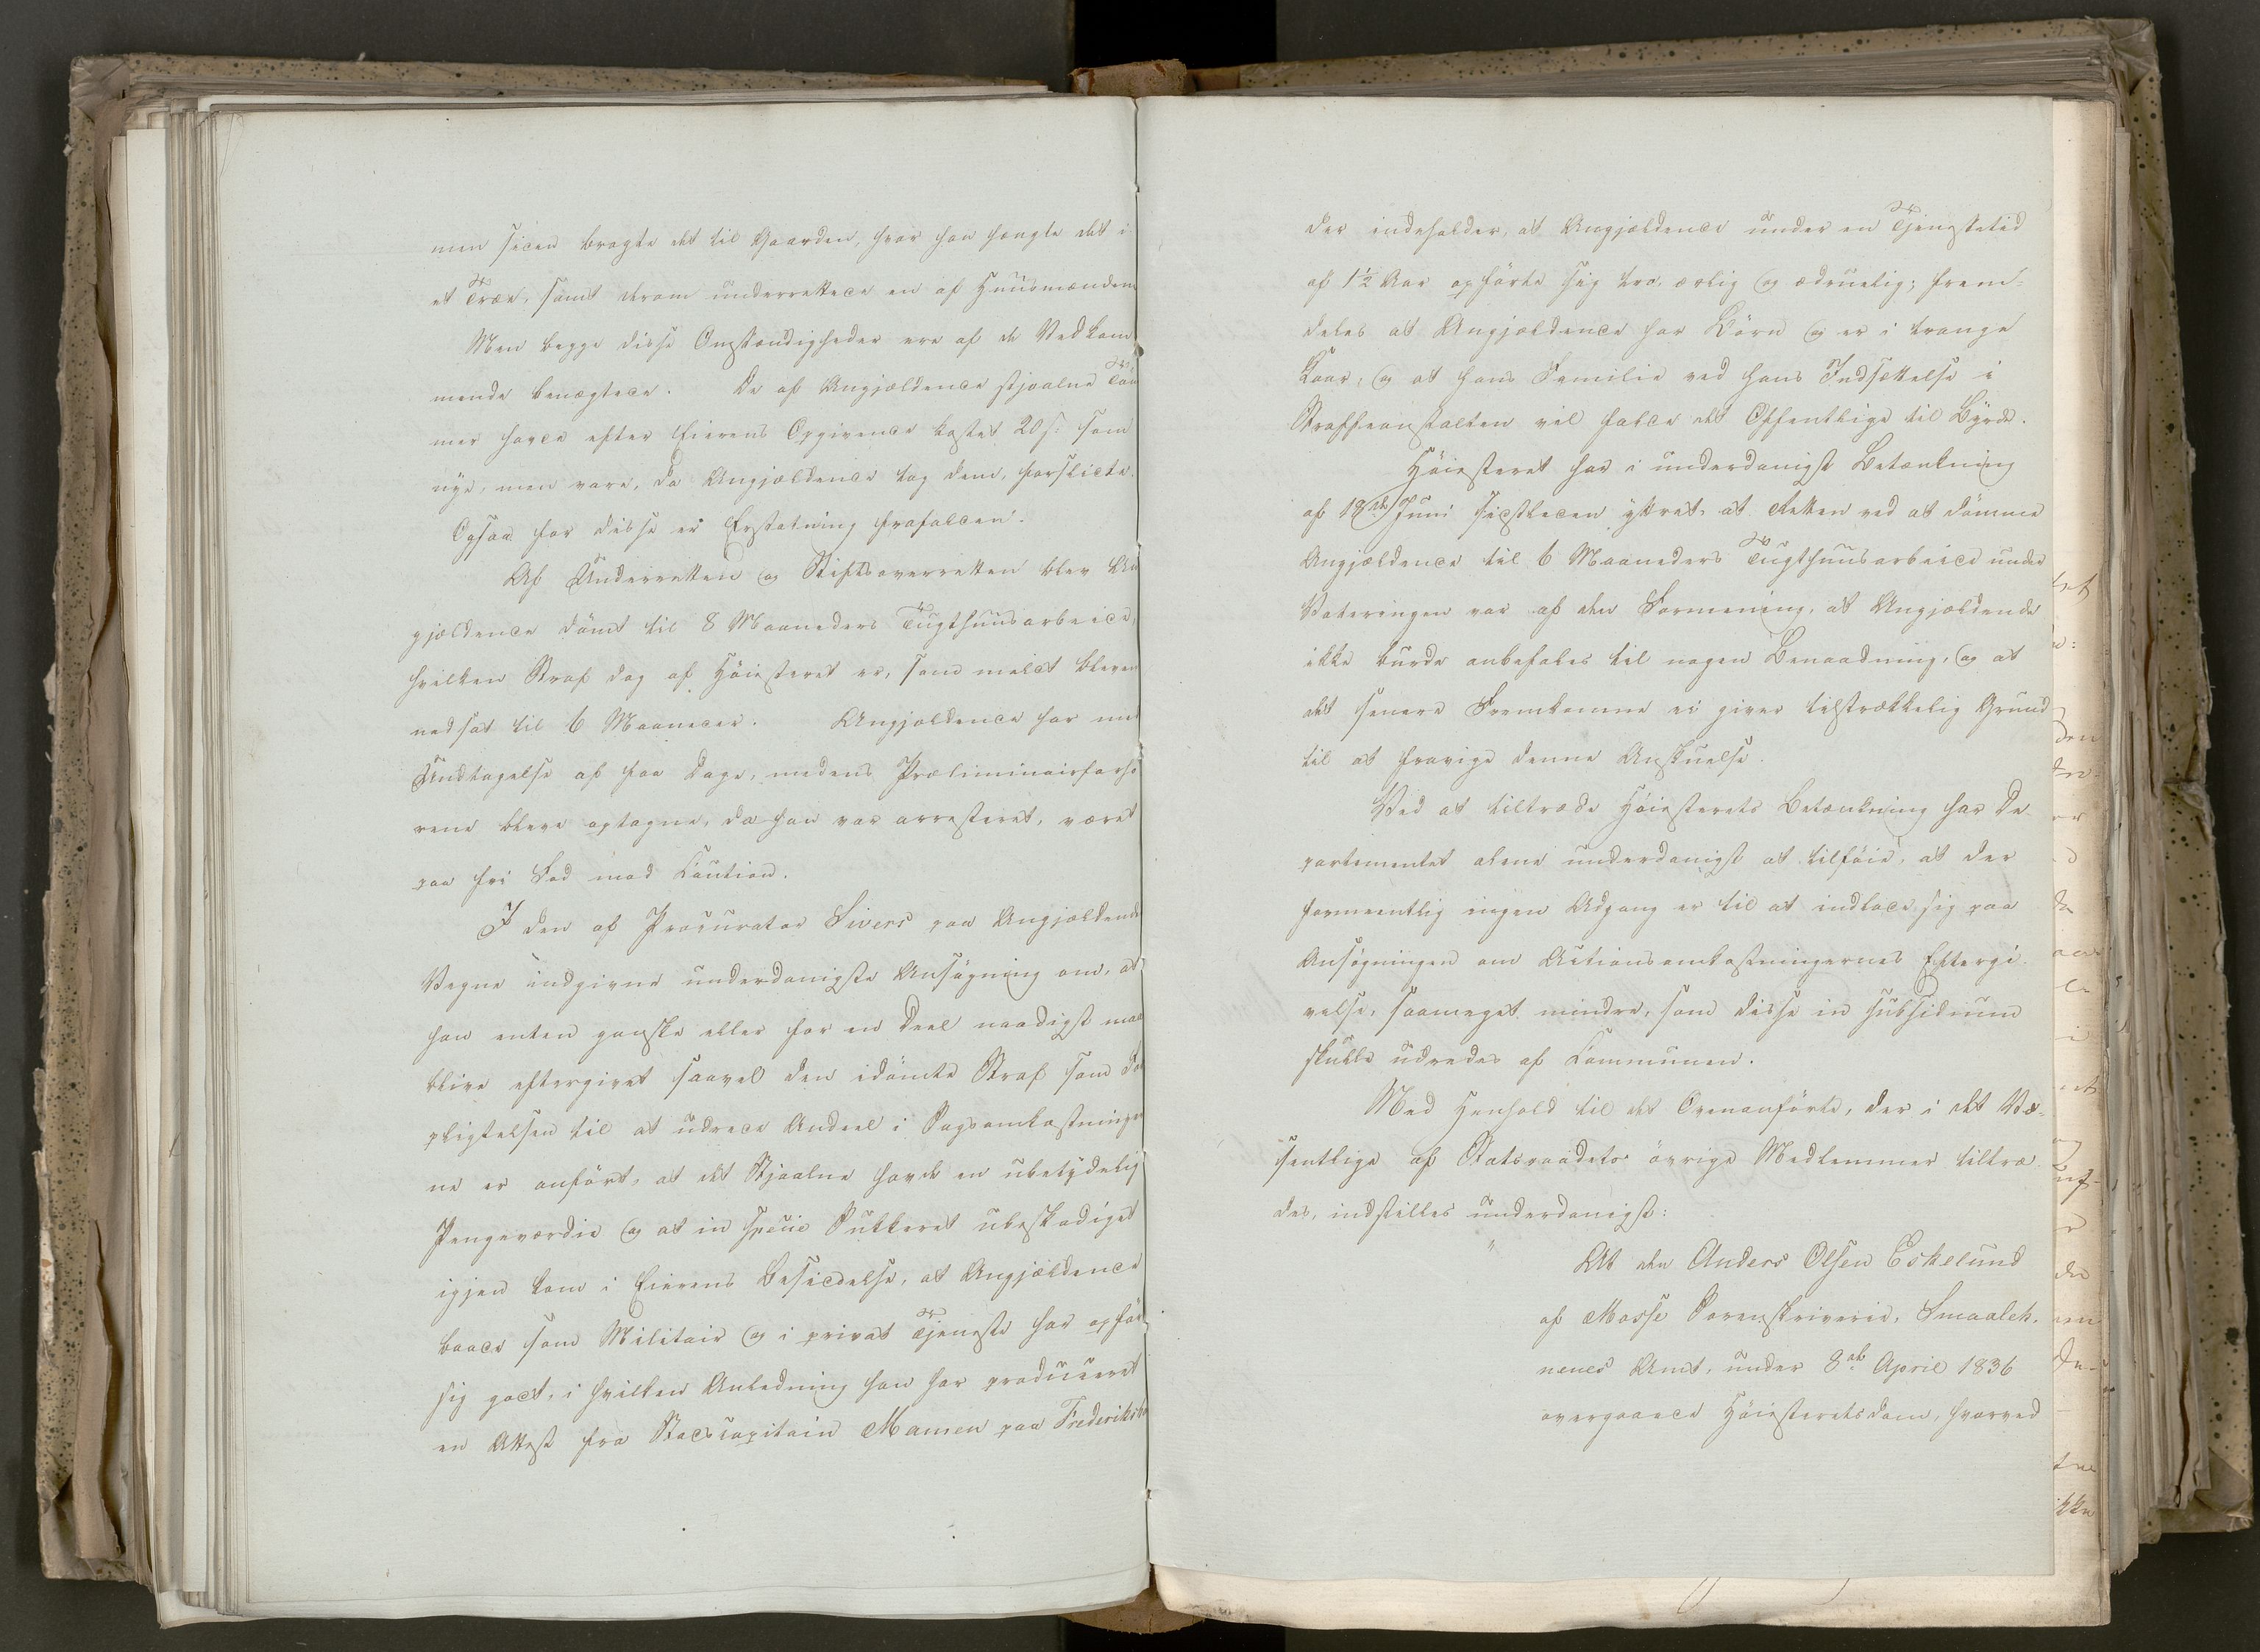 men siden bragte det til Gaarden, hvor han hængte det i
et Træe, samt derom underrettede en af Huusmændene
Men begge disse Omstændigheder ere af de Vedkom
mende benægtede. De af Angjældende stjaalne Tøm
mer havde efter Eierens Opgivende kostet 20 s: som
nye, men vare, da Angjældende tog dem, forslidte.
Ogsaa for disse er Erstatning frafalden.
Af Underretten og Stiftsoverretten blev An
gjældende dømt til 8 Maaneders Tugthuusarbeide,
hvilken Straf dog af Høiesteret er, som meldt bleven
nedsat til 6 Maaneder. Angjældende har med
Undtagelse af faa Dage, medens Præliminairforhø
rene bleve optagne, da han var arresteret, været
paa fri Fod mod Caution.
I den af Procurator Sivers paa Angjældende
Vegne indgivne underdanigste Ansøgning om, at
han enten ganske eller for en Deel naadigst maa
blive eftergivet saavel den idømte Straf som For
pligtelsen til at udrede Andeel i Sagsomkostninger
ne er anført, at det Stjaalne havde en ubetydelig
Pengeværdie og at in specie Sukkeret ubeskadiget
igjen kom i Eierens Besiddelse, at Angjældende
baade som Militair og i privat Tjeneste har opført
sig godt, i hvilken Anledning han har produceret
en Attest fra Stadscapitain Mamen paa Frederiksh
der indeholder, at Angjældende under en Tjenestetid
af 1½ Aar opførte sig tro, ærlig og ædruelig; frem-
deles at Angjældende har Børn og er i trange
Kaar, og at hans Familie ved hans Indsættelse i
Straffeanstalten vil falde det Offentlige til Byrde.
Høiesteret har i underdanigst Betænkning
af 18de Juni sidstleden yttret, at Retten ved at dømme
Angjældende til 6 Maaneders Tugthuusarbeide under
Voteringen var af den Formening, at Angjældende
ikke burde anbefales til nogen Benaadning, og at
det senere Fremkomne ei giver tilstrækkelig Grund
til at fravige denne Anskuelse.
Ved at tiltræde Høiesterets Betænkning har De
partementet alene underdanigst at tilføie, at der
formeentlig ingen Adgang er til at indlade sig paa
Ansøgningen om Actionsomkostningernes Eftergi-
velse, saameget mindre, som disse in subsidium
skulle udredes af Communen.
Med Henhold til det Ovenanførte, der i det Væ-
sentlige af Statsraadets øvrige Medlemmer tiltræ
des, indstilles underdanigst:
At den Anders Olsen Eskelund
af Mosse Sorenskriverie, Smaaleh-
nenes Amt, under 8de April 1836
overgaaede Høiesteretsdom, hvorved